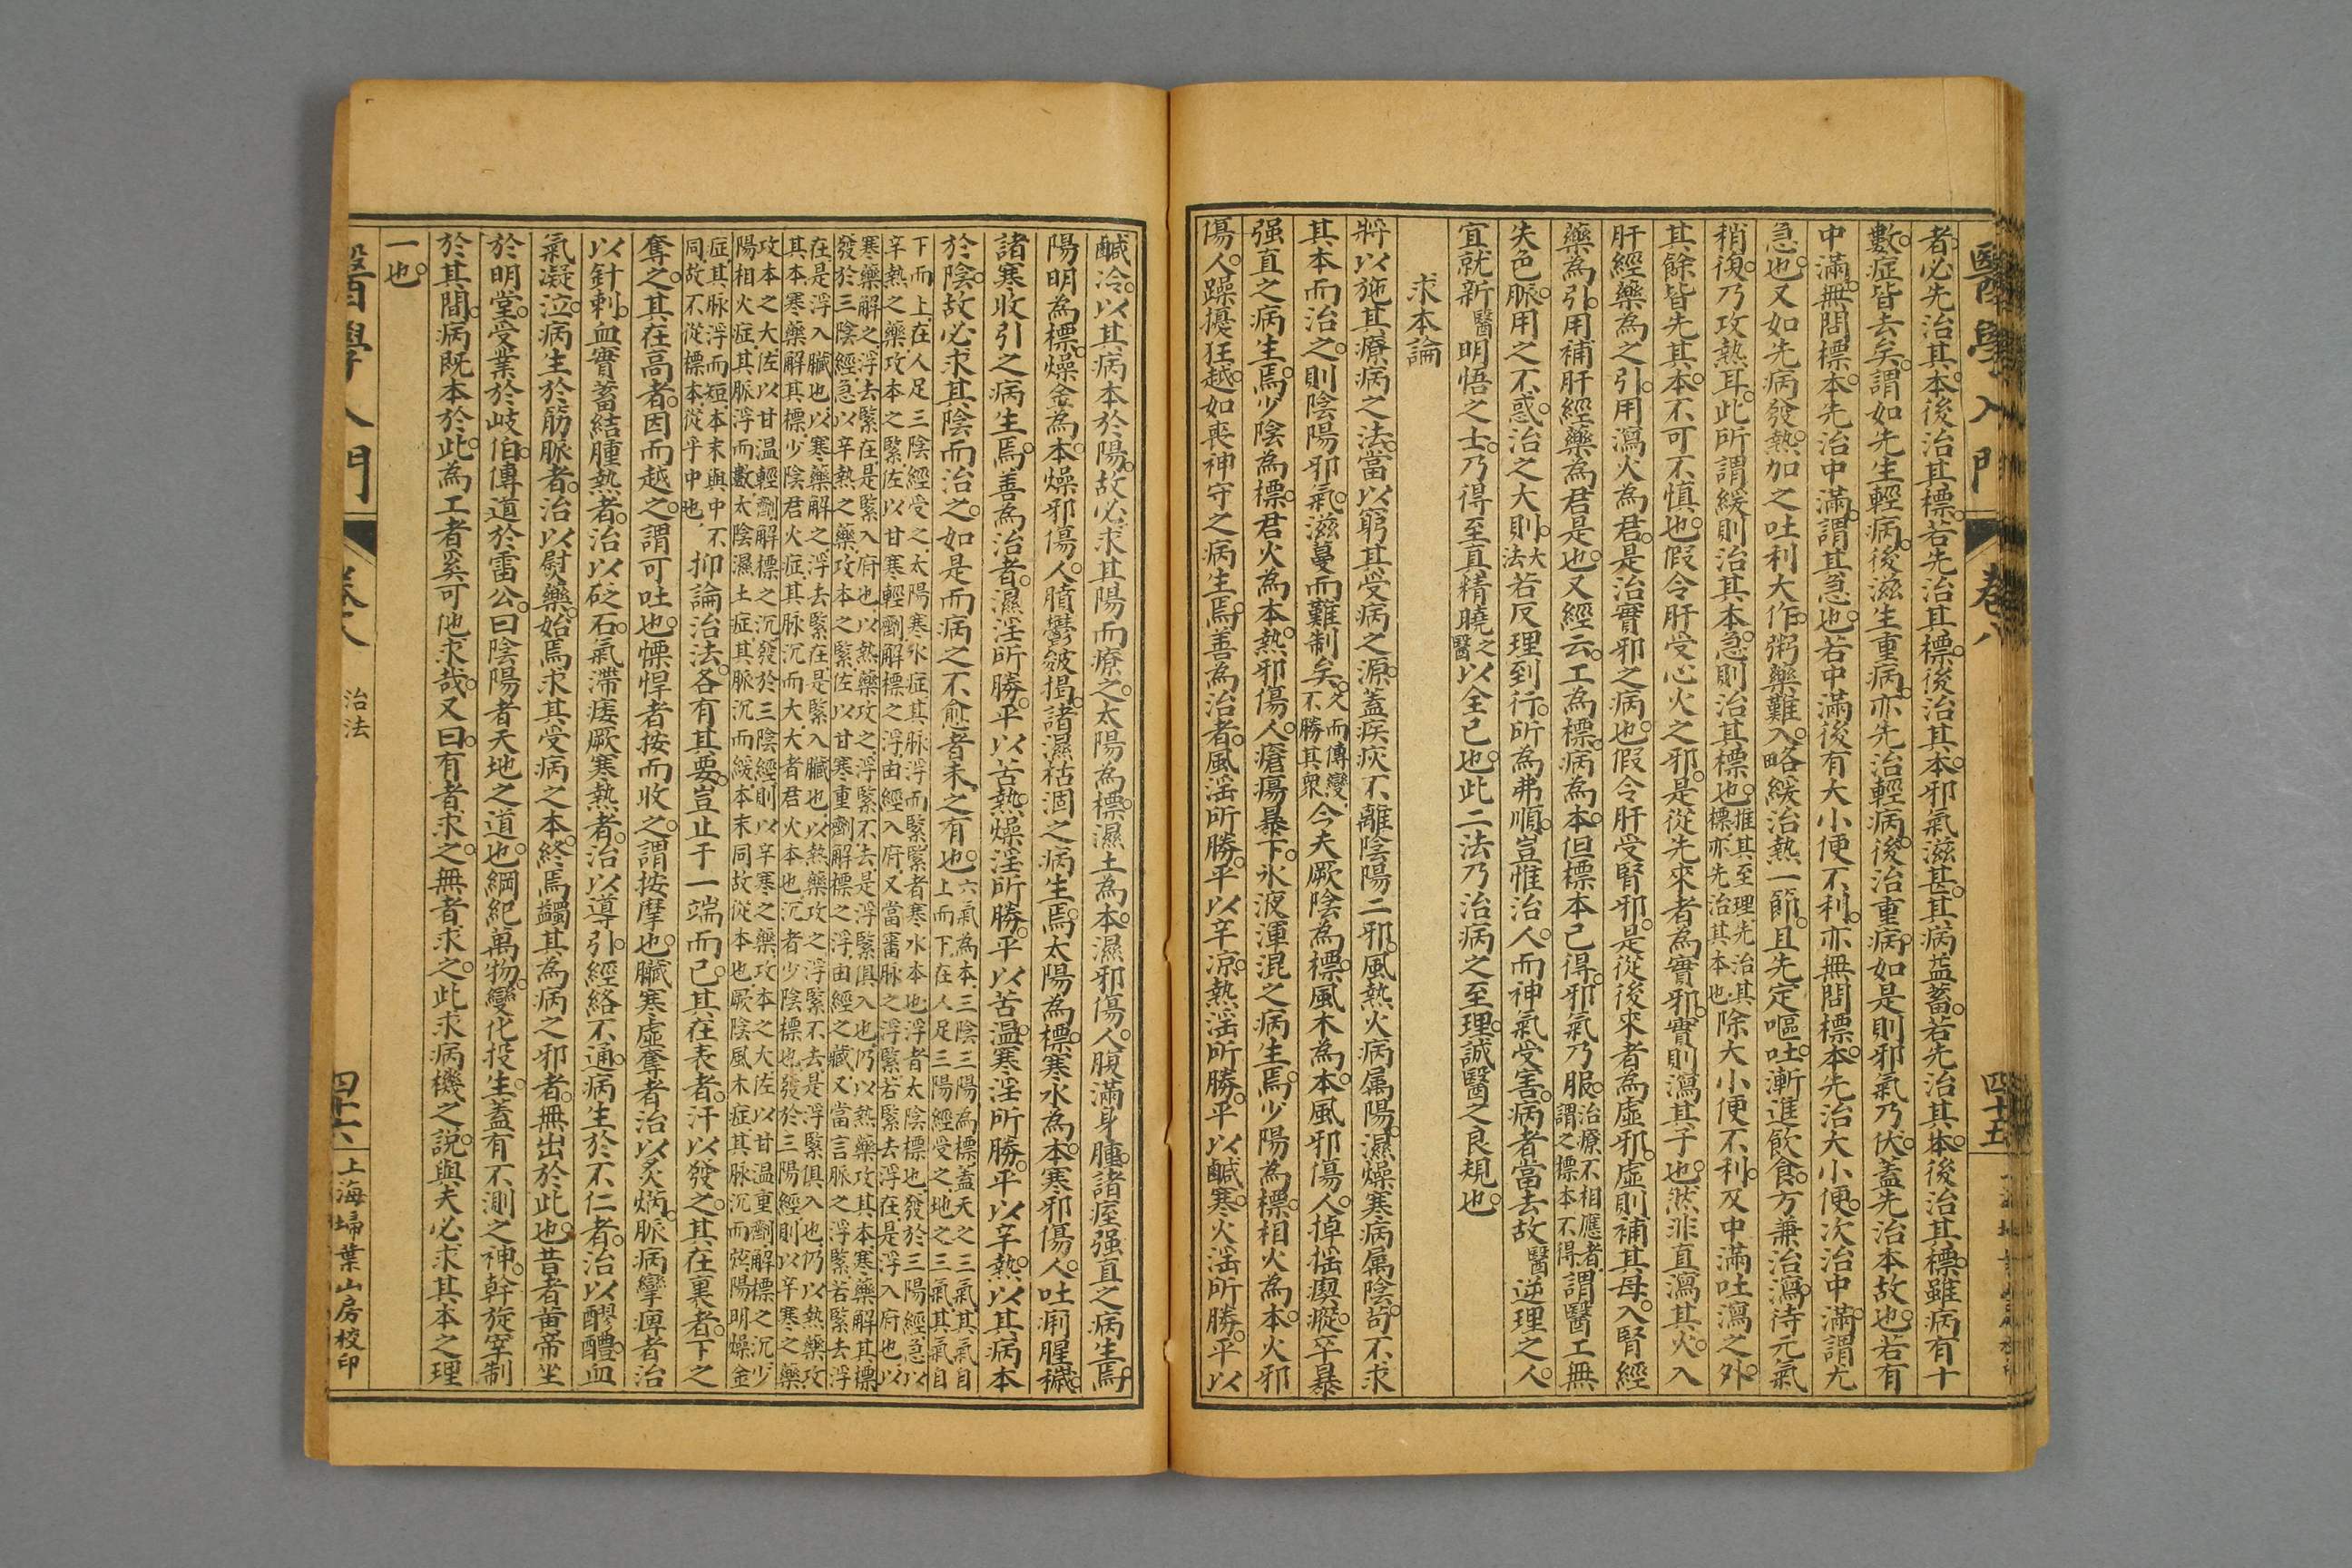 醫學入門
卷八
四十五
者。必先治其本。後治其標。若先治其標。後治其本。邪氣滋甚。其病益蓄。若先治其本。後治其標。雖病有十
數症。皆去矣。謂如先生輕病。後滋生重病。亦先治輕病。後治重病。如是則邪氣乃伏。蓋先治本故也。若有
中滿。無問標本。先治中滿。謂其急也。若中滿後有大小便不利。亦無問標本。先治大小便。次治中滿。謂尤
急也。又如先病發熱。加之吐利大作。粥藥難入。略緩治熱一節。且先定嘔吐。漸進飲食。方兼治瀉。待元氣
稍復。乃攻熱耳。此所謂緩則治其本。急則治其標也。推其至理先治其標亦先治其本也除大小便不利。及中滿吐瀉之外。
其餘皆先其本。不可不慎也。假令肝受心火之邪。是從先來者為實邪。實則瀉其子也。然非直瀉其火。入
肝經藥為之引。用瀉火為君。是治實邪之病也。假令肝受腎邪。是從後來者為虛邪。虛則補其母。入腎經
藥為引。用補肝經藥為君是也。又經云。工為標。病為本。但標本已得。邪氣乃服。治療不相應者。謂之標本不得。謂醫工無
失色脈。用之不惑。治之大則。大法若反理到行。所為弗順。豈惟治人。而神氣受害。病者當去故醫逆理之人。
宜就新醫明悟之士。乃得至真精曉之醫以全已也。此二法乃治病之至理。誠醫之良規也。
求本論
將以施其療病之法。當以窮其受病之源。蓋疾疢不離陰陽二邪。風熱火病屬陽。濕燥寒病屬陰。苟不求
其本而治之。則陰陽邪氣。滋蔓而難制矣。久而傳變。不勝其眾今夫厥陰為標。風木為本。風邪傷人。掉搖瘈瘲。卒暴
强直之病生焉。少陰為標。君火為本。熱邪傷人。瘡瘍暴下。水液渾混之病生焉。少陽為標。相火為本。火邪
傷人。躁擾狂越。如喪神守之病生焉。善為治者。風淫所勝。平以辛涼。熱淫所勝。平以鹹寒。火淫所勝。平以
鹹冷。以其病本於陽。故必求其陽而療之。太陽為標。濕土為本。濕邪傷人。腹滿身腫。諸痓强直之病生焉。
陽明為標。燥金為本。燥邪傷人。膹鬱皴揭。諸濕枯涸之病生焉。太陽為標。寒水為本。寒邪傷人。吐痢腥穢。
諸寒收引之病生焉。善為治者。濕淫所勝。平以苦熱。燥淫所勝。平以苦溫。寒淫所勝。平以辛熱。以其病本
於陰。故必求其陰而治之。如是而病之不愈者。未之有也。六氣為本。三陰三陽為標。蓋天之三氣。其氣自上而下。在人足三陽經受之。地之三氣。其氣自
下而上。在人足三陰經受之。太陽寒水症。其脈浮而緊。緊者寒水本也。浮者太陰標也。發於三陽經。急以
辛熱之藥攻本之緊。佐以甘寒輕劑解標之浮。由經入府。又當審脈之浮緊。若緊去浮在。是浮入府也。以
寒藥解之。浮去緊在。是緊入府也。以熱藥攻之。浮緊不去。是浮緊俱入也。仍以熱藥攻其本。寒藥解其標。
發於三陰經。急以辛熱之藥攻本之緊。佐以甘寒重劑解標之浮。由經之藏。又當言脈之浮緊。若緊去浮
在。是浮入臟也。以寒藥解之。浮去緊在。是緊入臟也。以熱藥攻之。浮緊不去。是浮緊俱入也。仍以熱藥攻
其本。寒藥解其標。少陰君火症。其脈沉而大。大者君火本也。沉者少陰標也。發於三陽經。則以辛寒之藥
攻本之大。佐以甘溫輕劑解標之沉。發於三陰經。則以辛寒之藥攻本之大。佐以甘溫重劑解標之沉。少
陽相火症。其脈浮而數。太陰濕土症。其脈沉而緩。本末同。故從本也。厥陰風木症。其脈沉而弦。陽明燥金
症。其脈浮而短。本末與中不同。故不從標本。從乎中也。抑論治法。各有其要。豈止于一端而已。其在表者。汗以發之。其在裏者。下之
奪之。其在高者。因而越之。謂可吐也。慄悍者。按而收之。謂按摩也。臟寒虛奪者。治以炙焫。脈病攣痺者。治
以針刺。血實蓄結腫熱者。治以砭石。氣滯痿厥寒熱者。治以導引。經絡不通。病生於不仁者。治以醪醴。血
氣凝泣。病生於筋脈者。治以熨藥。始焉求其受病之本。終焉蠲其為病之邪者。無出於此也。昔者黃帝坐
於明堂。受業於岐伯。傳道於雷公。曰陰陽者。天地之道也。綱紀萬物。變化投生。蓋有不測之神。幹旋宰制
於其間。病既本於此。為工者奚可他求哉。又曰有者求之。無者求之。此求病機之說。與夫必求其本之理
一也。
醫學入門
卷八
治法
四十六
上海埽葉山房校印